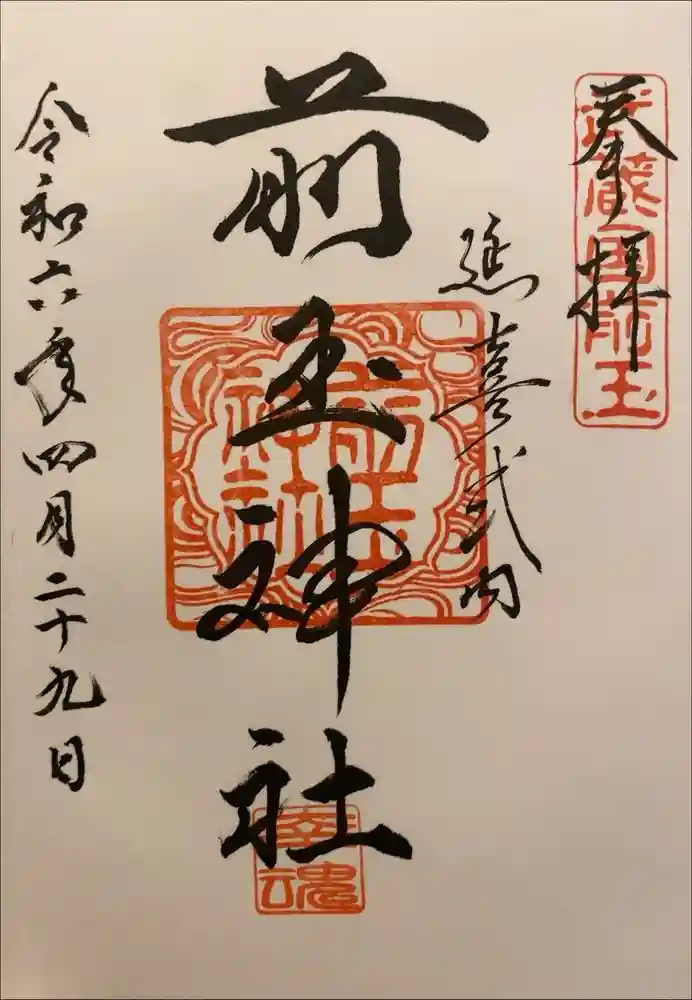 奉拝
武蔵国前玉
延喜式内
前玉神社
前玉神社
幸魂
令和六年四月二十九日